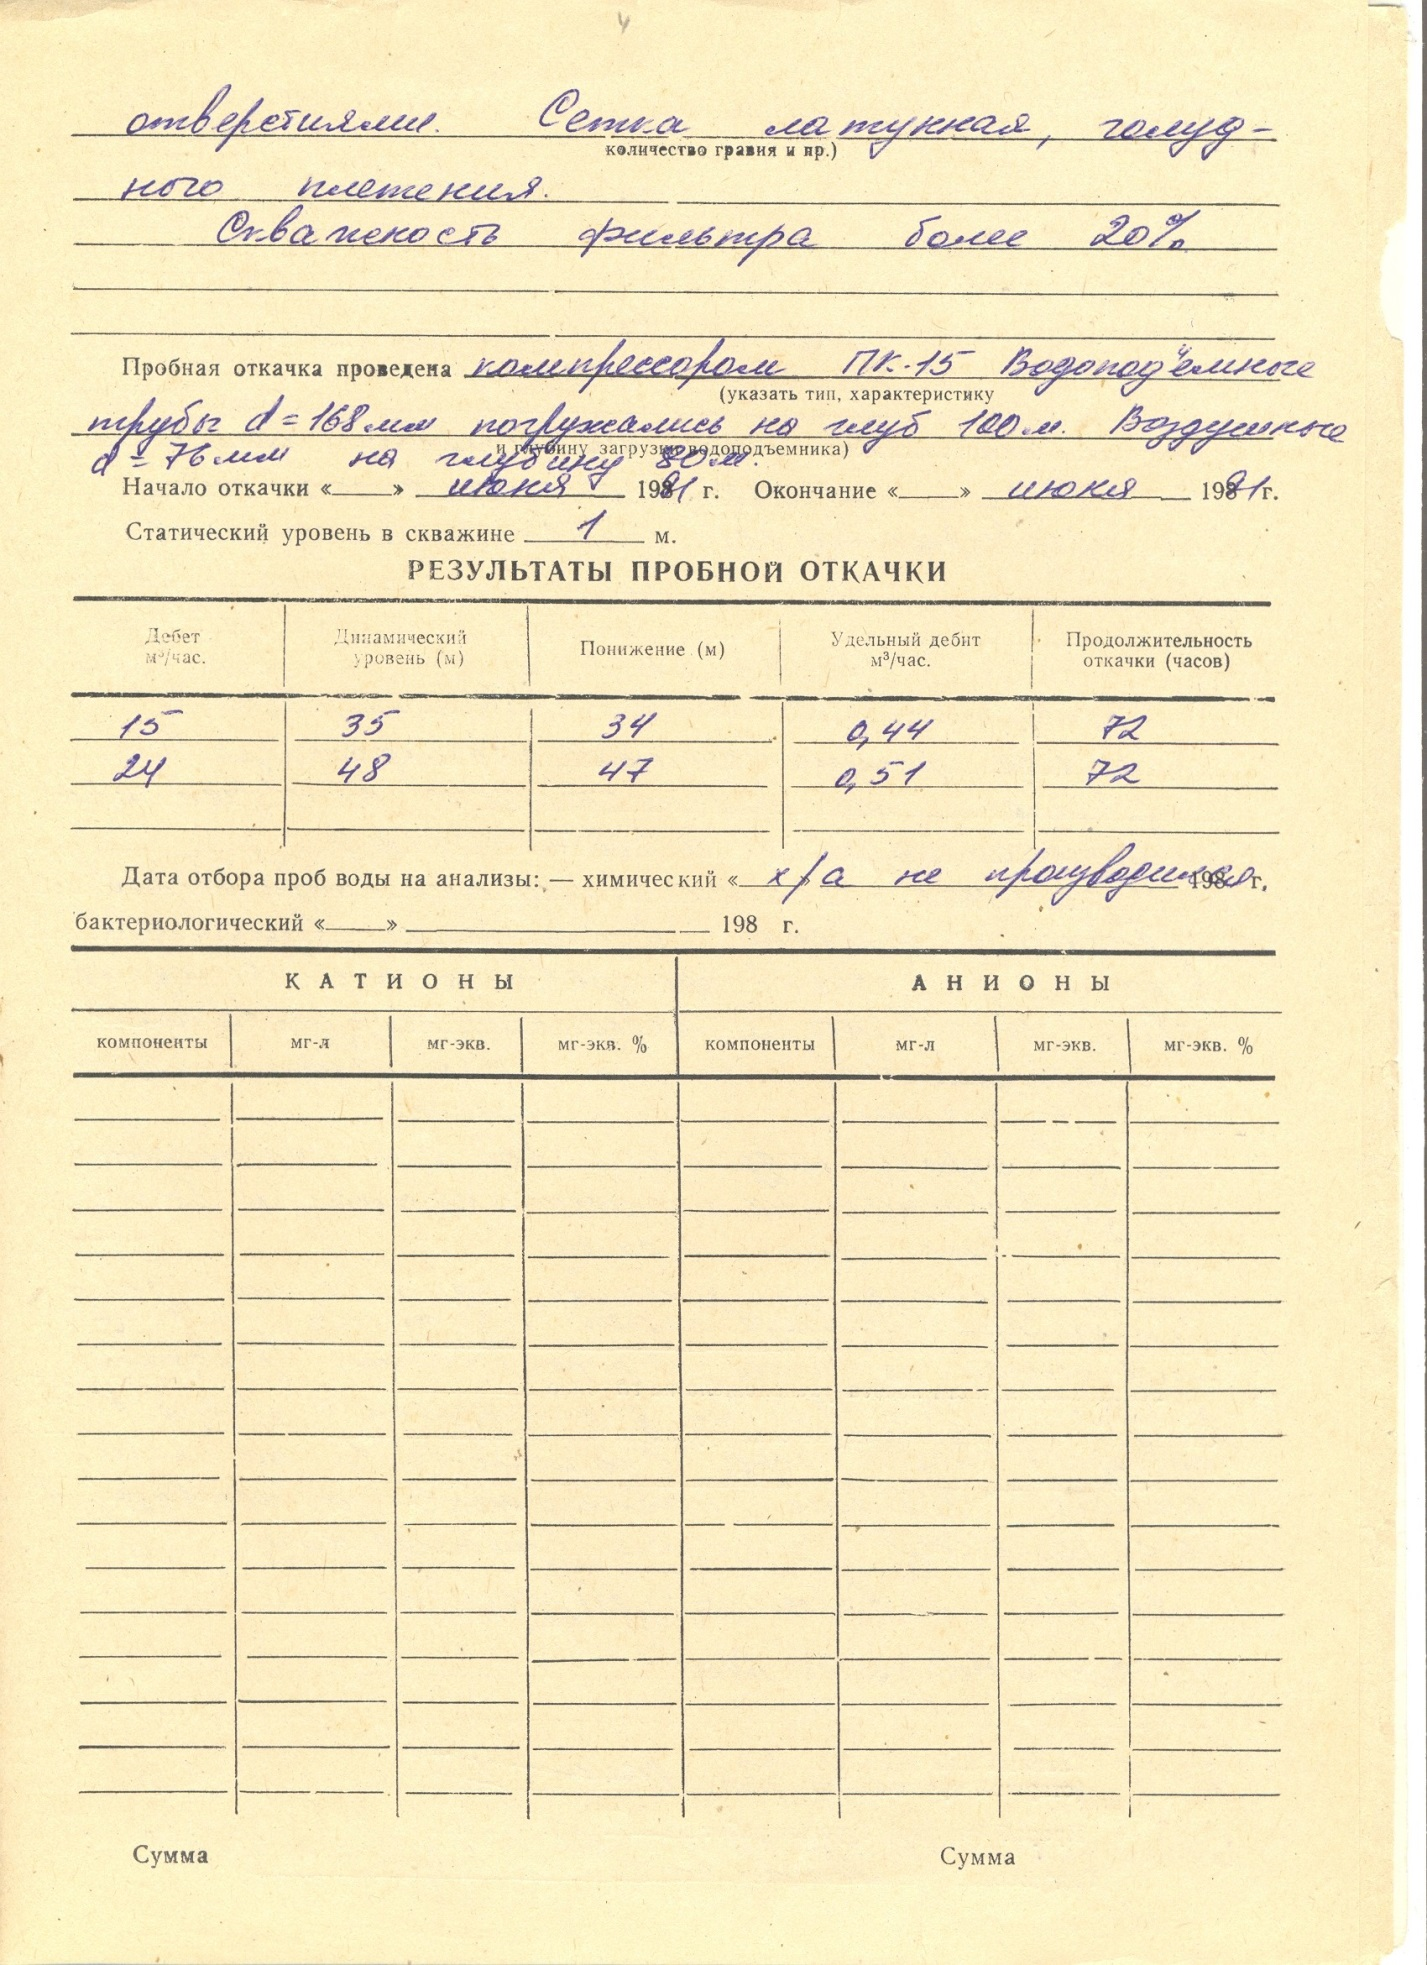 4
отверстиями. Сетка латунная, галуд-
количество гравия и пр.)
ного плетения.
Скважность фильтра более 20%
Пробная откачка проведена компрессором ПК-15 Водоподъемные
(указать тип, характеристику
трубы d=168мм погружались на глуб 100м. Воздушные
и глубину загрузки водоподъемника)
d=76мм на глубину 80м.
Начало откачки «    » июня 1991 г. Окончание «    » июня 1991 г.
Статический уровень в скважине 1 м.
РЕЗУЛЬТАТЫ ПРОБНОЙ ОТКАЧКИ
Дебет м³/час. Динамический уровень (м) Понижение (м) Удельный дебит м³/час. Продолжительность откачки (часов)
15 35 34 0,44 72
24 48 47 0,51 72
Дата отбора проб воды на анализы: — химический « х/а не производился 198 г.
бактериологический «    » 198 г.
КАТИОНЫ АНИОНЫ
компоненты мг-л мг-экв. мг-экв. % компоненты мг-л мг-экв. мг-экв. %
Сумма Сумма